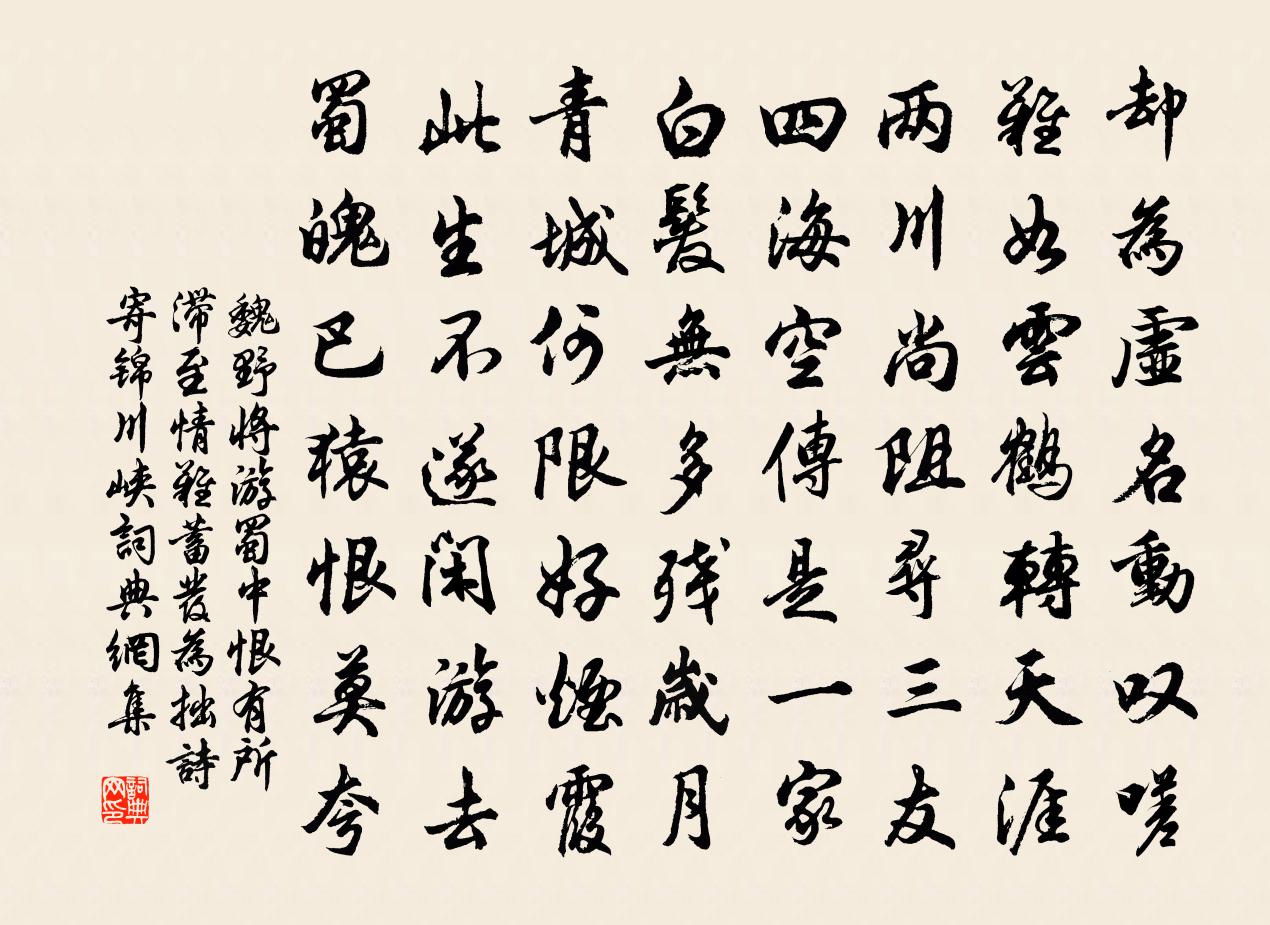 却為虛名動叹嗟
難如雲鶴轉天涯
两川尚阻尋三友
四海空傳是一家
白髮無多残歲月
青城何限好煙霞
此生不遂闲游去
蜀魄巴猿恨莫夸
魏野将游蜀中恨有所
滞至情難蓄發為拙詩
寄锦川峡詞典網集
詞典
网印